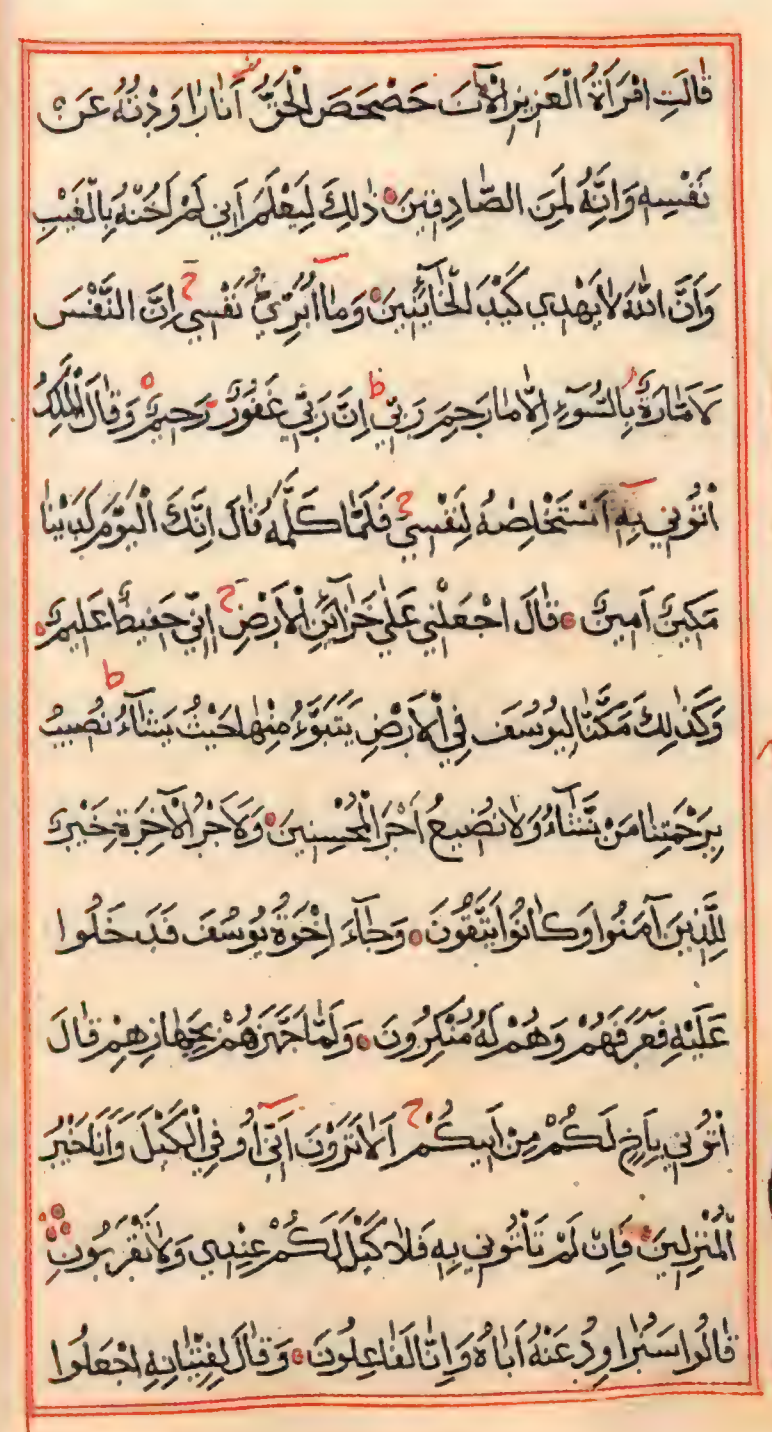 قَالَتِ امْرَأَةُ الْعَزِيزِ الْآنَ حَصْحَصَ الْحَقُّ أَنَا رَاوَدْتُهُ عَنْ
نَفْسِهِ وَإِنَّهُ لَمِنَ الصَّادِقِينَ ذَٰلِكَ لِيَعْلَمَ أَنِّي لَمْ أَخُنْهُ بِالْغَيْبِ
وَأَنَّ اللّٰهَ لَا يَهْدِي كَيْدَ الْخَائِنِينَ وَمَا أُبَرِّئُ نَفْسِي ج إِنَّ النَّفْسَ
لَأَمَّارَةٌ بِالسُّوءِ إِلَّا مَا رَحِمَ رَبِّي ط إِنَّ رَبِّي غَفُورٌ رَحِيمٌ وَقَالَ الْمَلِكُ
ائْتُونِي بِهِ أَسْتَخْلِصْهُ لِنَفْسِي ج فَلَمَّا كَلَّمَهُ قَالَ إِنَّكَ الْيَوْمَ لَدَيْنَا
مَكِينٌ أَمِينٌ قَالَ اجْعَلْنِي عَلَىٰ خَزَائِنِ الْأَرْضِ ج إِنِّي حَفِيظٌ عَلِيمٌ
وَكَذَٰلِكَ مَكَّنَّا لِيُوسُفَ فِي الْأَرْضِ يَتَبَوَّءُ مِنْهَا حَيْثُ يَشَاءُ ط نُصِيبُ
بِرَحْمَتِنَا مَنْ نَشَاءُ وَلَا نُضِيعُ أَجْرَ الْمُحْسِنِينَ وَلَأَجْرُ الْآخِرَةِ خَيْرٌ
لِلَّذِينَ آمَنُوا وَكَانُوا يَتَّقُونَ وَجَاءَ إِخْوَةُ يُوسُفَ فَدَخَلُوا
عَلَيْهِ فَعَرَفَهُمْ وَهُمْ لَهُ مُنْكِرُونَ وَلَمَّا جَهَّزَهُمْ بِجَهَازِهِمْ قَالَ
ائْتُونِي بِأَخٍ لَكُمْ مِنْ أَبِيكُمْ ج أَلَا تَرَوْنَ أَنِّي أُوفِي الْكَيْلَ وَأَنَا خَيْرُ
الْمُنْزِلِينَ فَإِنْ لَمْ تَأْتُونِي بِهِ فَلَا كَيْلَ لَكُمْ عِنْدِي وَلَا تَقْرَبُونِ
قَالُوا سَنُرَاوِدُ عَنْهُ أَبَاهُ وَإِنَّا لَفَاعِلُونَ وَقَالَ لِفِتْيَانِهِ اجْعَلُوا